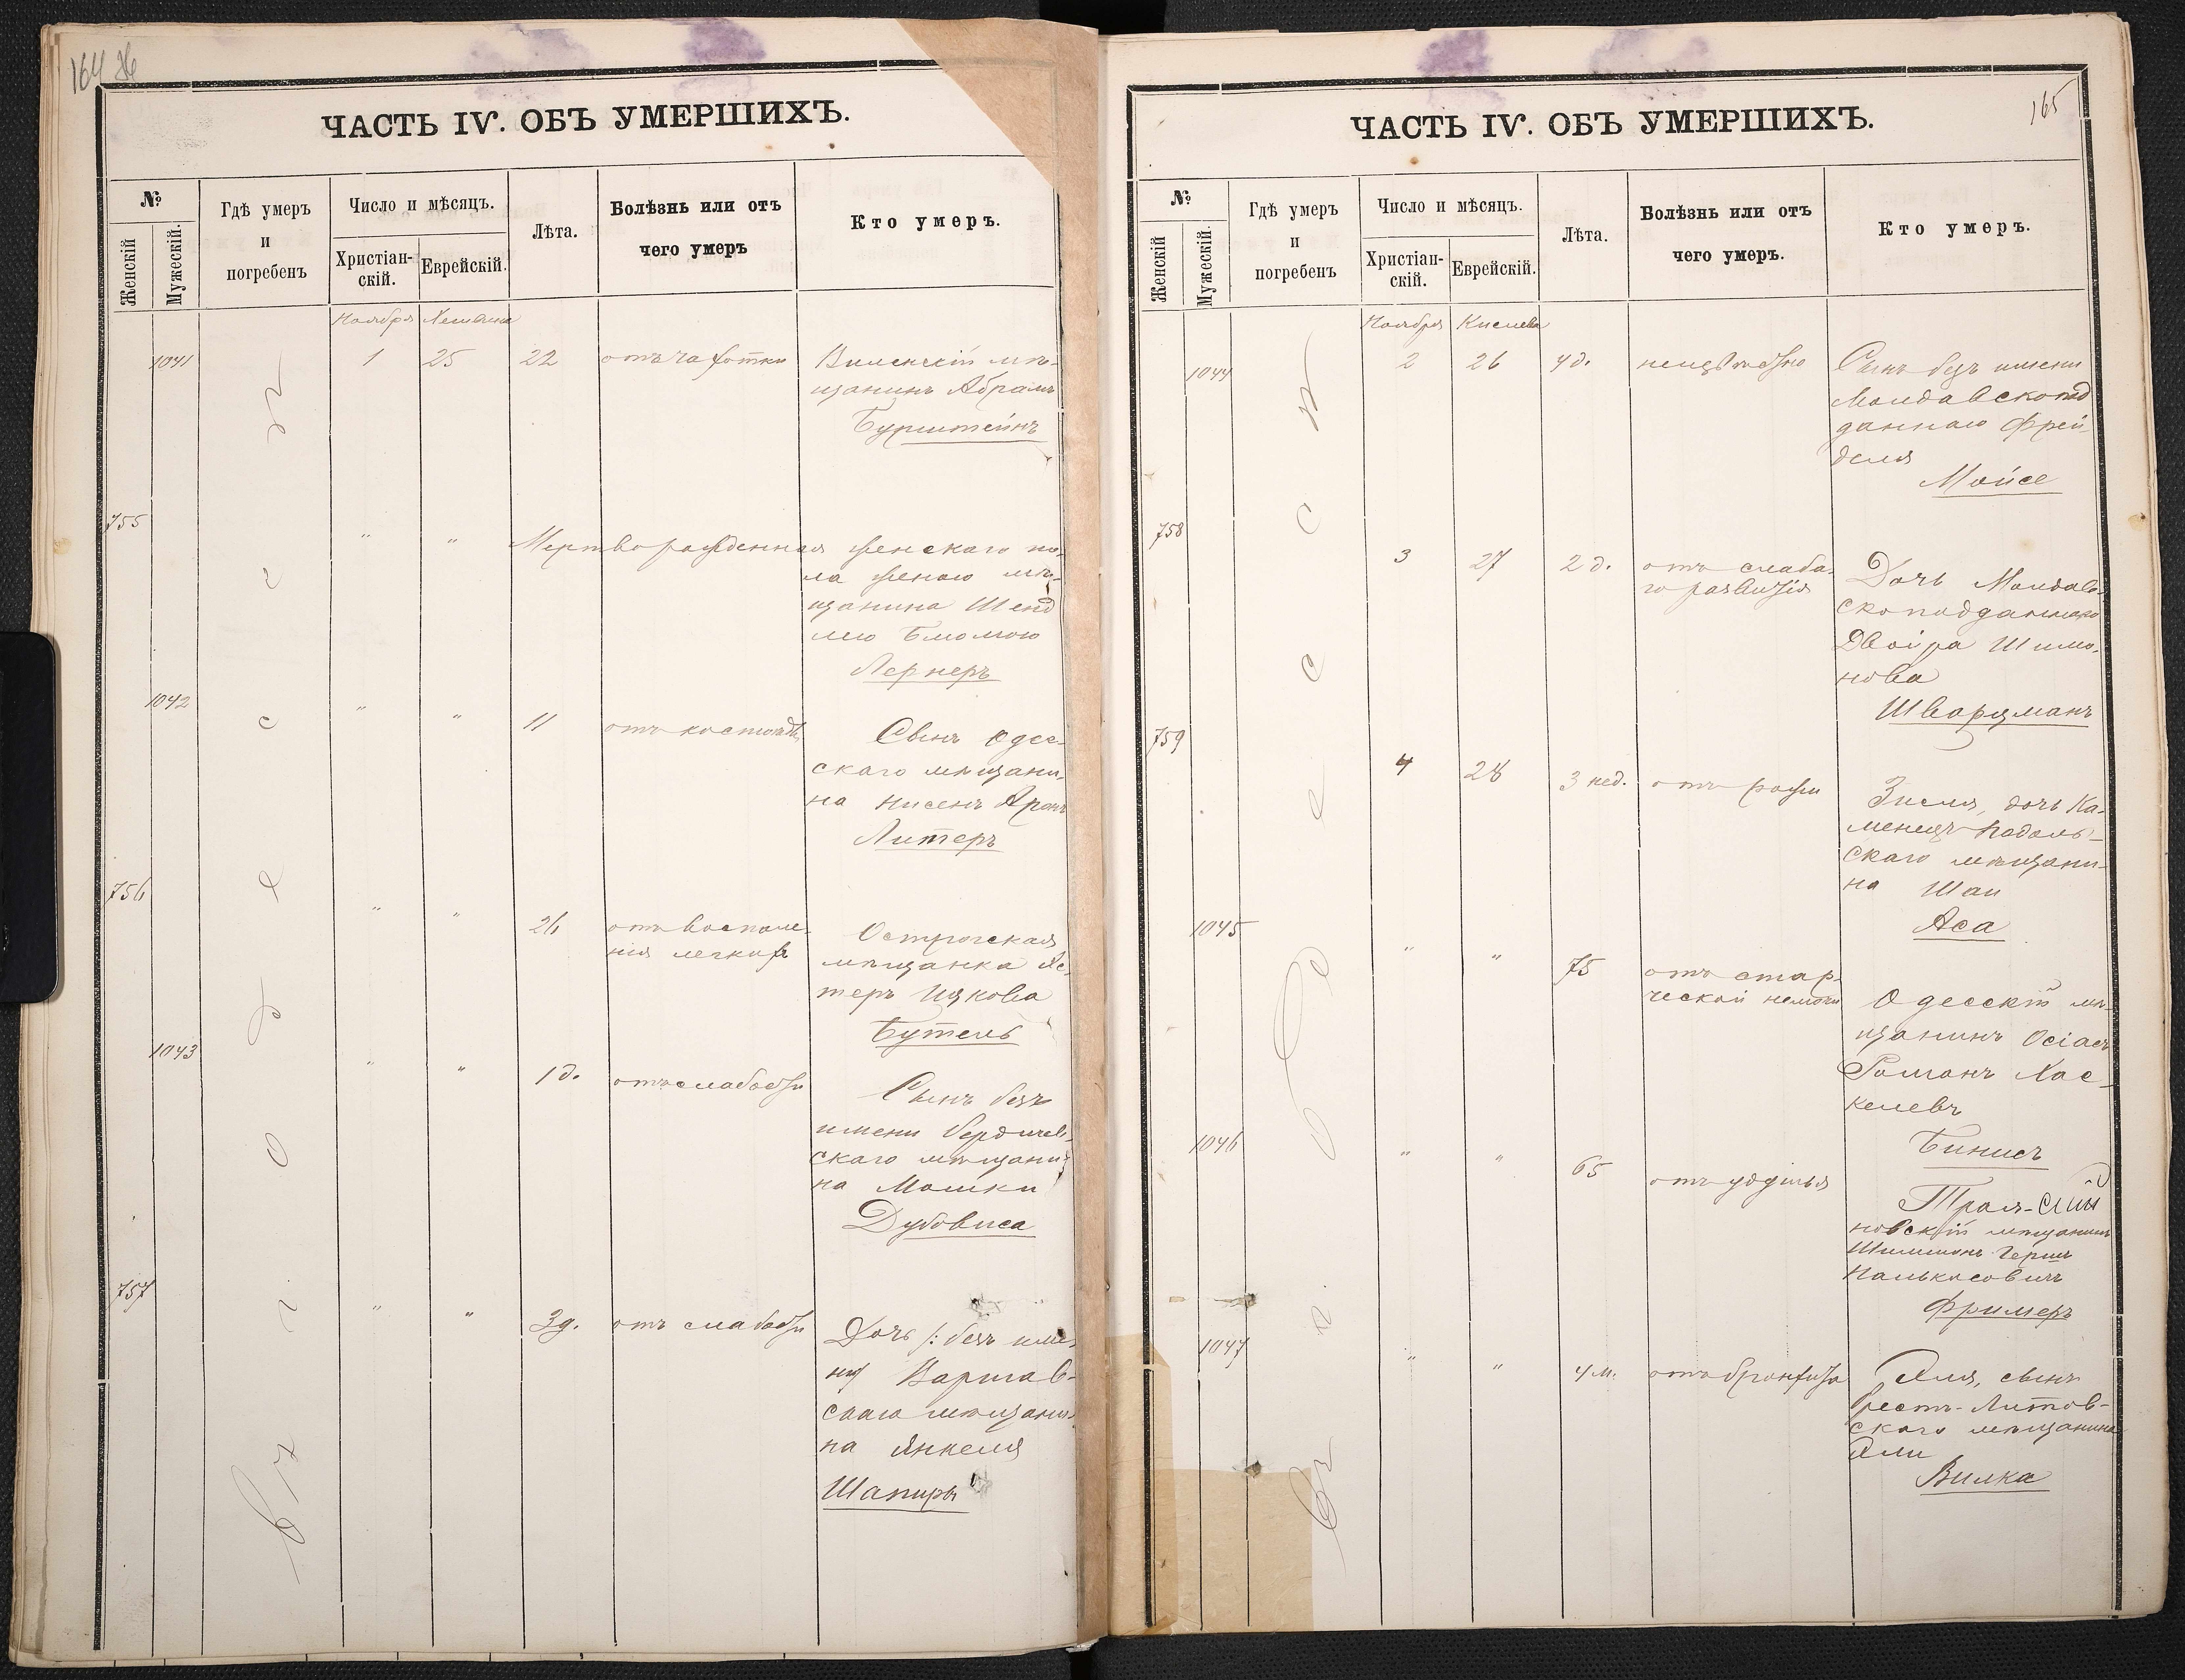 164
ЧАСТЬ IV. ОБЪ УМЕРШИХЪ.
№
Женскій
Мужескій.
Гдѣ умеръ
и
погребенъ
Число и мѣсяцъ.
Христіан-
скій.
Еврейскій.
Лѣта.
Болѣзнь или отъ
чего умеръ
Кто умеръ.
Ноября Хешвана
1041 1 25 22 отъ чахотки Виленскій мѣ-
щанинъ Абрамъ
Бурштейнъ
755 " " Мертворожденная женскаго по-
ла женою мѣ-
щанина Шенд
лею Блюмою
Лернеръ
1042 " " 11 отъ костоѣды Сынъ Одес-
скаго мѣщани-
на Нисенъ Аронъ
Литеръ
756 " " 26 отъ воспале-
нія легкихъ
Острогская
мѣщанка Эс-
теръ Ицкова
Бутель
1043 " " 1 д. отъ слабости Сынъ безъ
имени Бердичев-
скаго мѣщани-
на Мошки
Дубовиса
757 " " 3 д. отъ слабости Дочь /: безъ име-
ни/ Варшав-
скаго мѣщани-
на Янкеля
Шапиры
въ г. Одессѣ
165
ЧАСТЬ IV. ОБЪ УМЕРШИХЪ.
№
Женскій
Мужескій.
Гдѣ умеръ
и
погребенъ
Число и мѣсяцъ.
Христіан-
скій.
Еврейскій.
Лѣта.
Болѣзнь или отъ
чего умеръ.
Кто умеръ.
Ноября Кислева
1044 2 26 4 д. неизвѣстно Сынъ безъ имени
Молдавскопод
даннаго Фрей-
деля
Мойсе
758 3 27 2 д. отъ слаба-
го развитія
Дочь Молдав-
скоподданнаго
Двойра Шимо-
нова
Шварцманъ
759 4 28 3 нед. отъ рожи Зисля, дочь Ка-
менецъ-Подоль-
скаго мѣщани-
на Шаи
Аса
1045 " " 75 отъ стар-
ческой немощи
Одесскій мѣ-
щанинъ Осіасъ
Хас-
келевъ
Бинисъ
1046 " " 65 отъ удушья
новскій мѣщанинъ
Герш
Фримеръ
1047 " " 4 м. отъ бронхита Эля, сынъ
Брестъ-Литов-
скаго мѣщанина
Эли
Вилка
въ г. Одессѣ